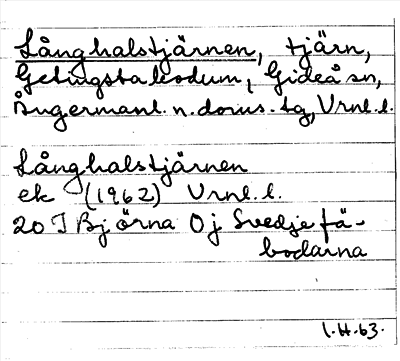 Långhalstjärnen, tjärn,
Getingstabodum, Gideå sn,
Ångermanl. n. doms. tg, Vrnl. l.
Långhalstjärnen
ek (1962) Vrnl. l.
20 I Björna 0 j Svedjefä-
bodarna
1.H.63.